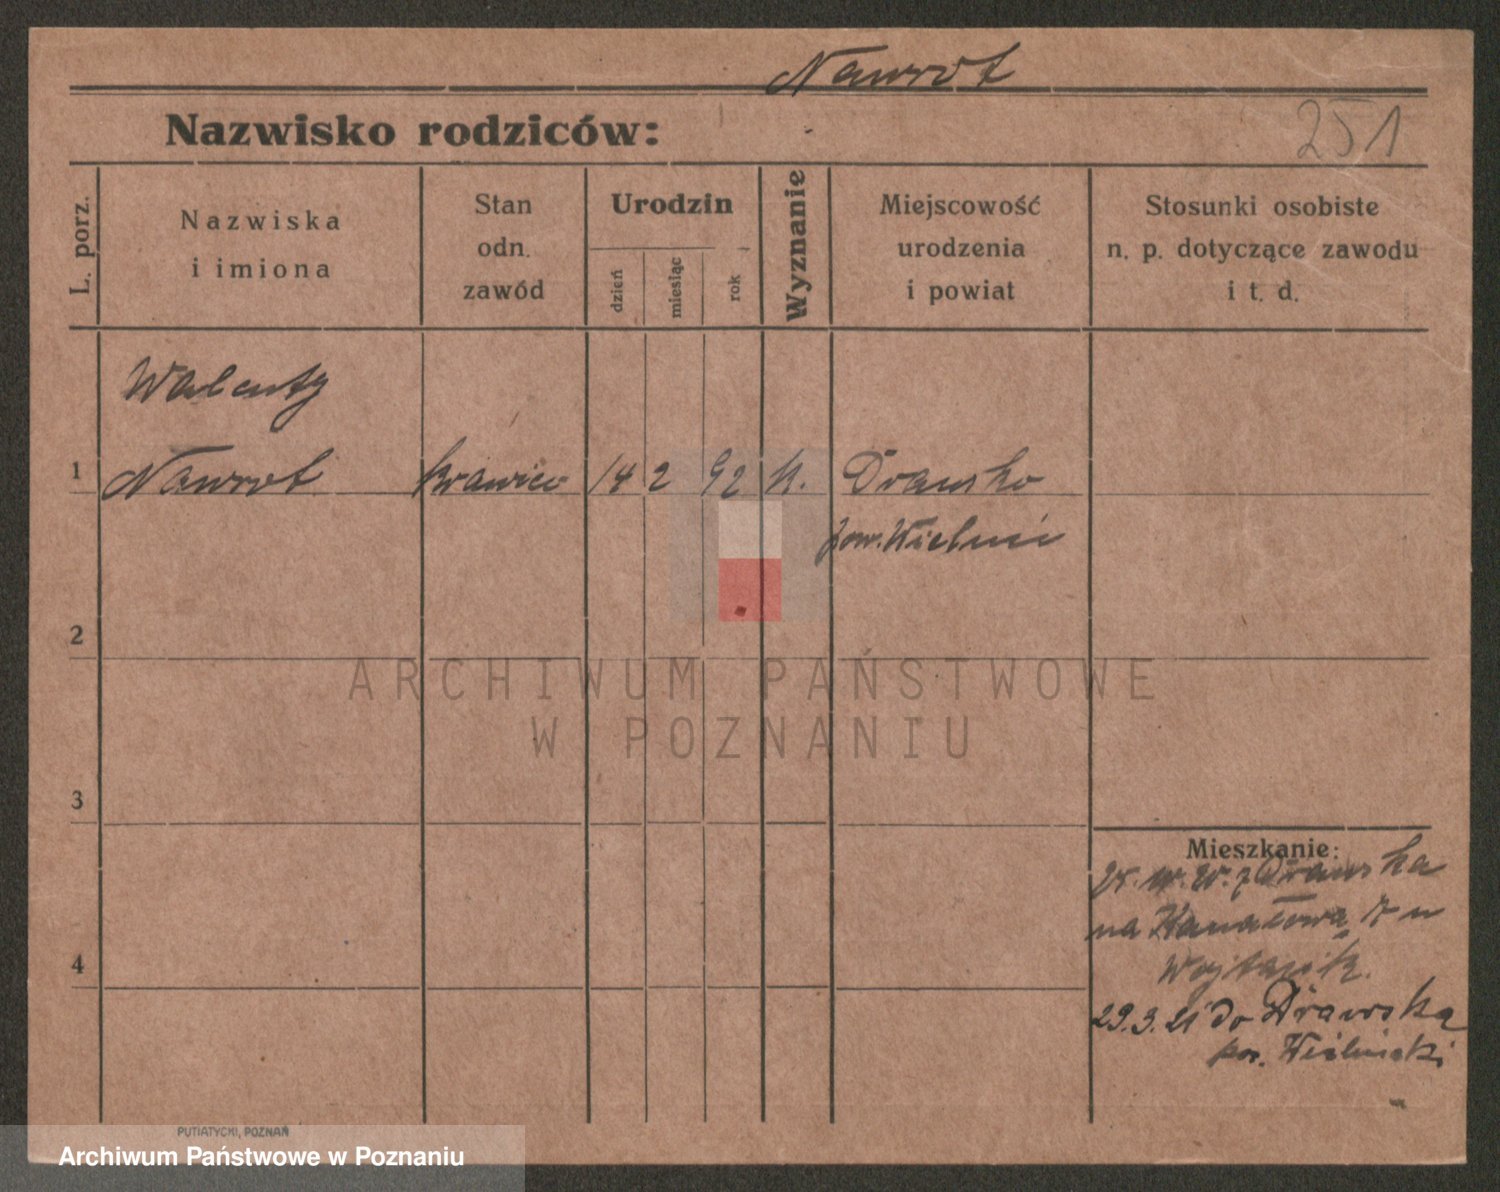 Nawrot
Nazwisko rodziców:
251
L. porz.
Nazwiska
i imiona
Stan
odn.
zawód
Urodzin
dzień
miesiąc
rok
Wyznanie
Miejscowość
urodzenia
i powiat
Stosunki osobiste
n. p. dotyczące zawodu
i t. d.
Walenty
1 Nawrot krawiec 14 2 92 k. Drawsko
pow. Wieleń
2
3
4
Mieszkanie:
z Drawska
na Kanałową 7 u
29.3.21 do Drawska
pow. Wieleński
PUTIATYCKI, POZNAŃ
ARCHIWUM PAŃSTWOWE
W POZNANIU
Archiwum Państwowe w Poznaniu